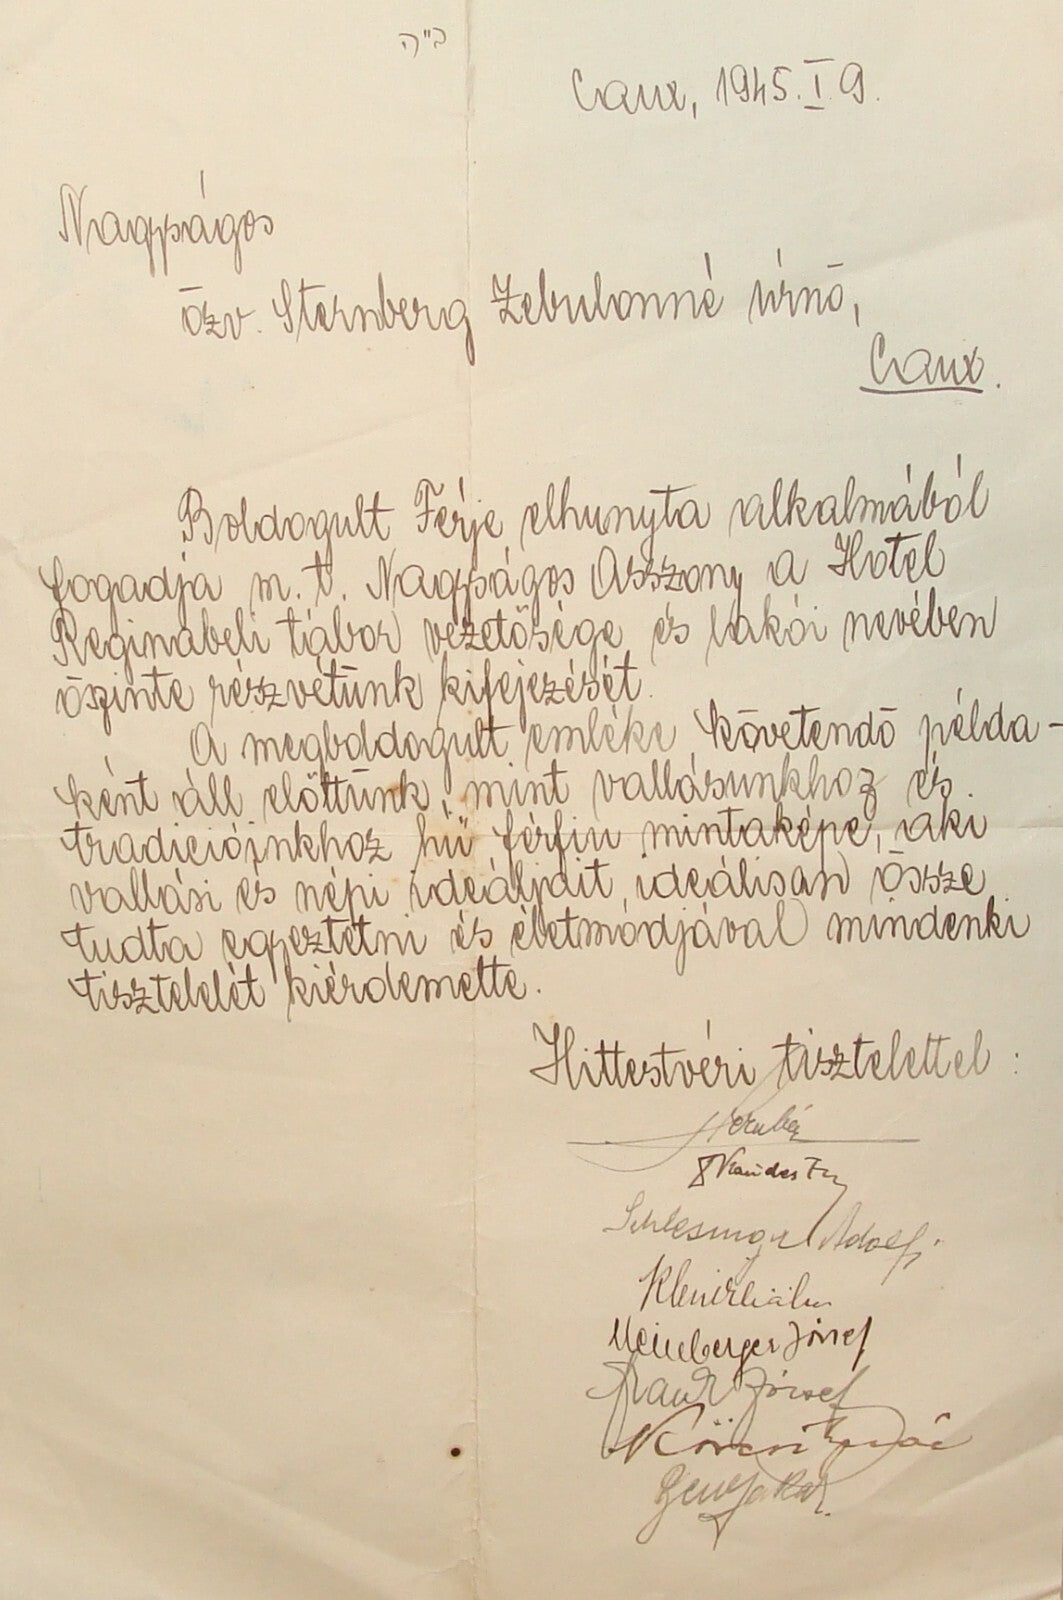 ב"ה
Caux, 1945.I.9.
Nagyságos
özv. Sternberg Zebulonné úrnő,
Caux.
Boldogult Férje elhunyta alkalmából
fogadja m. t. Nagyságos Asszony a Hotel
Reginabeli tábor vezetősége és lakói nevében
őszinte részvétünk kifejezését.
A megboldogult emléke követendő példa-
ként áll előttünk, mint vallásunkhoz és
tradicióinkhoz hű férfiu mintaképe, aki
vallási és népi ideáljait ideálisan össze
tudta egyeztetni és életmódjával mindenki
tiszteletét kiérdemelte.
Hittestvéri tisztelettel:
Schlesinger Adolf
József
József